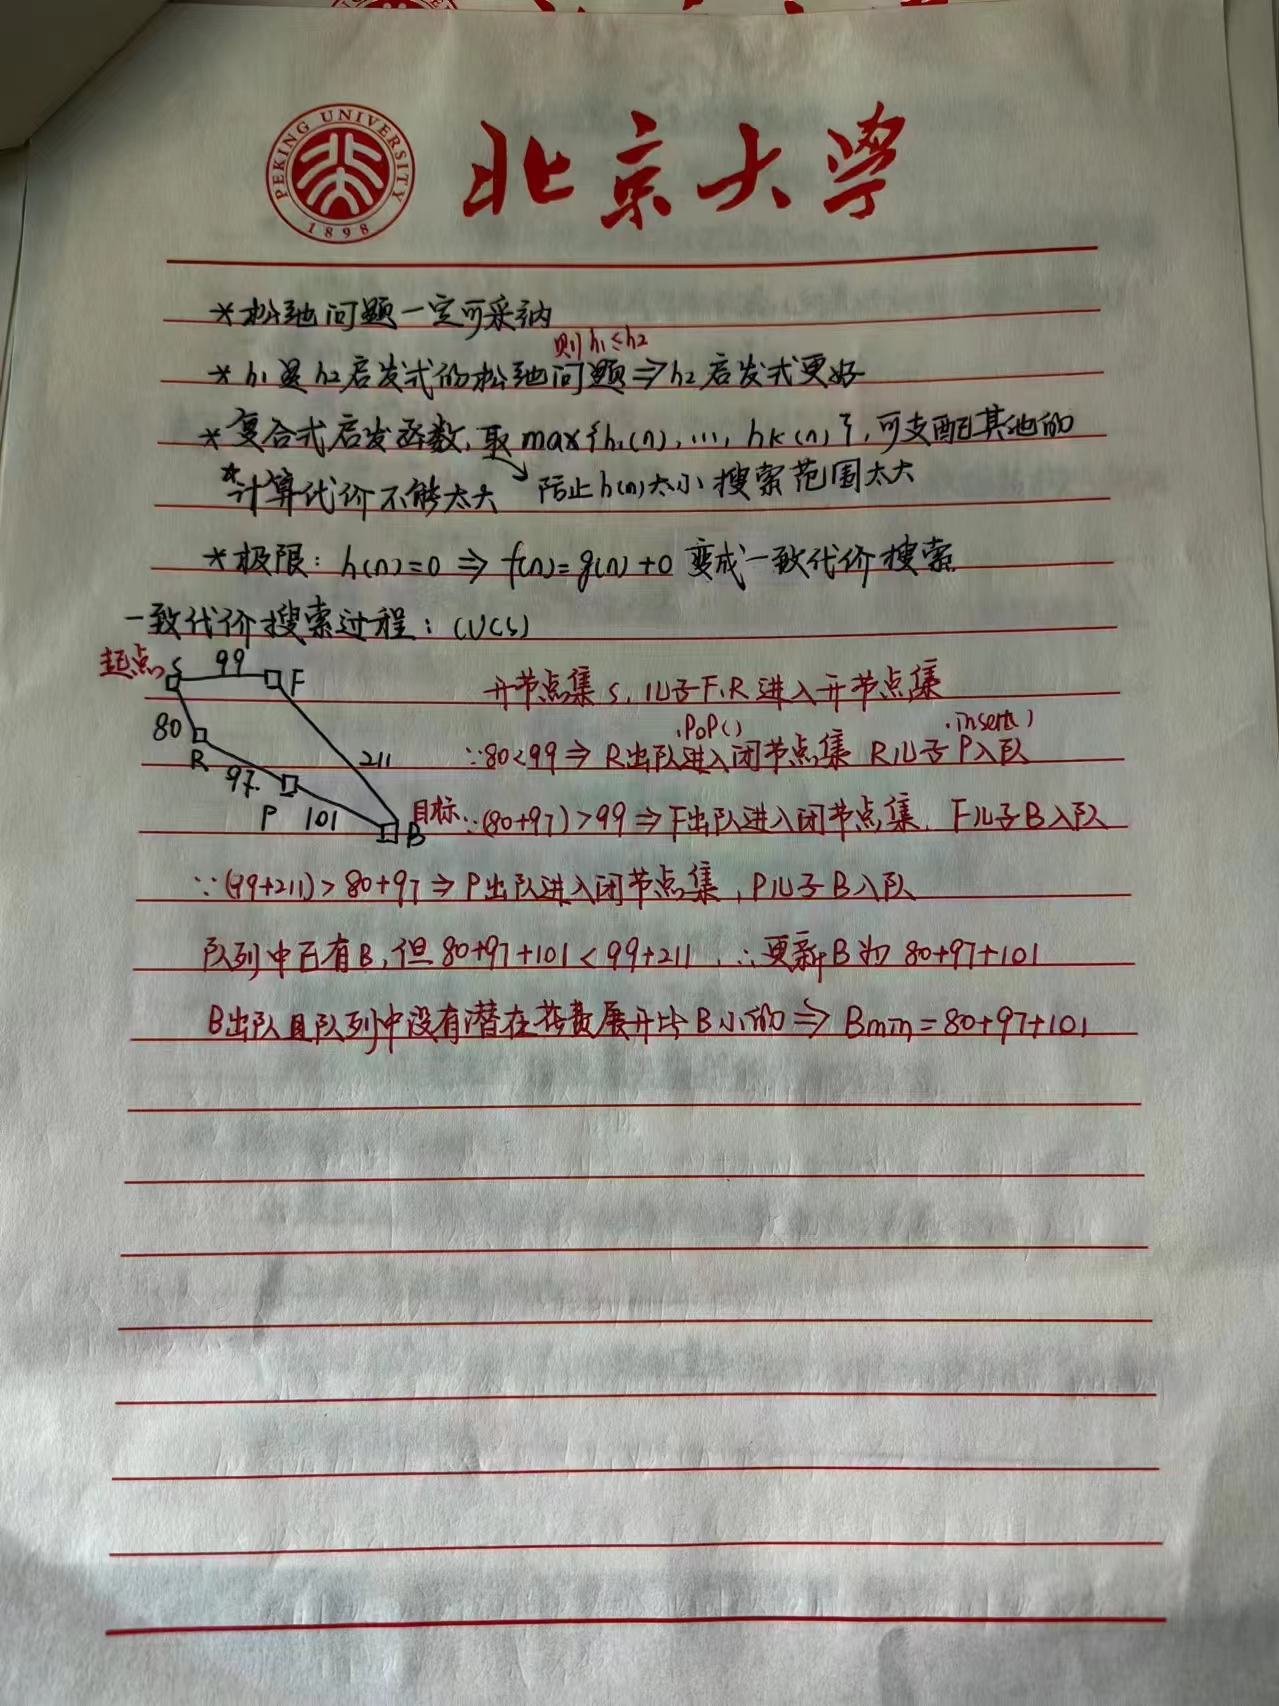 PEKING UNIVERSITY
1898
北京大学
*松弛问题一定可采纳
则h₁≤h₂
*h₁是h₂启发式的松弛问题⇒h₂启发式更好
*复合式启发函数,取max{h₁(n),…,hk(n)},可支配其他的
*计算代价不能太大 防止h(n)太小搜索范围太大
*极限:h(n)=0⇒f(n)=g(n)+0 变成一致代价搜索
一致代价搜索过程:(UCS)
起点 S 99 F
开节点集S,儿子F、R进入开节点集
.pop() .insert()
80 R 97 211
∵80<99⇒R出队进入闭节点集 R儿子P入队
P 101 B 目标
∵(80+97)>99⇒F出队进入闭节点集,F儿子B入队
∵(99+211)>80+97⇒P出队进入闭节点集,P儿子B入队
队列中已有B,但80+97+101<99+211,∴更新B为80+97+101
B出队且队列中没有潜在花费展开比B小的⇒Bmin=80+97+101